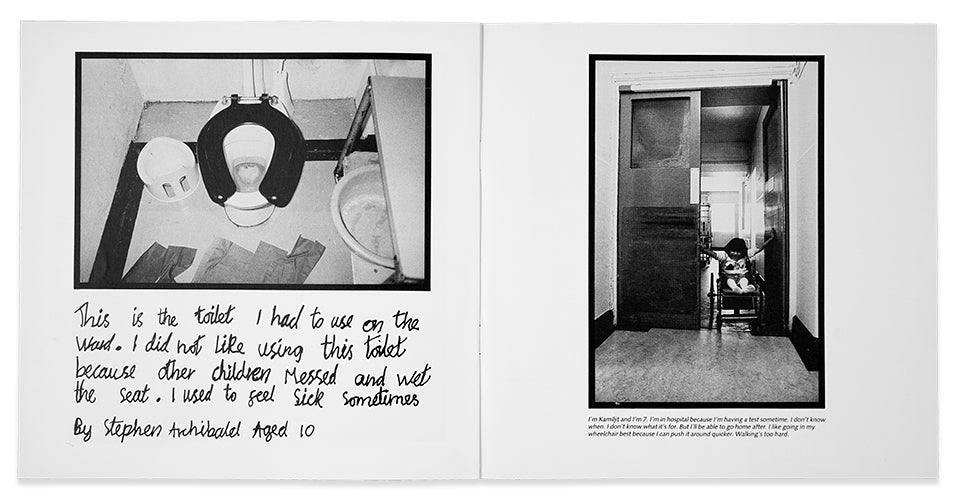 This is the toilet I had to use on the
Ward. I did not like using this toilet
because other children Messed and wet
the seat. I used to feel Sick Sometimes
By Stephen Archibald Aged 10
I'm Kamiljit and I'm 7. I'm in hospital because I'm having a test sometime. I don't know
when. I don't know what it's for. But I'll be able to go home after. I like going in my
wheelchair best because I can push it around quicker. Walking's too hard.